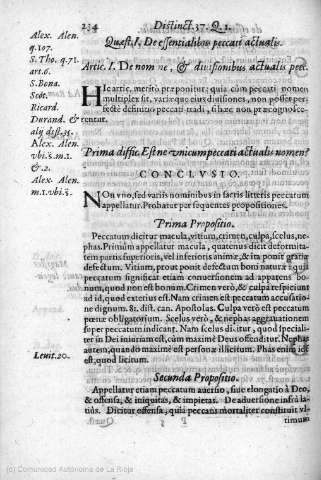 234 Distinct. 37. Q. 1.
Quæst. 1. De essentialibus peccati actualis.
Artic. 1. De nomine, & diuisionibus actualis pec.
Alex. Alen.
q.107.
S. Tho. q.71.
art.6.
S. Bona.
Scot.
Ricard.
Durand. &
alij dist.35.
Alex. Alen.
vbi s. m.1
& 2.
Alex. Alen.
m.1. vbi s.
HIc artic. meritò præponitur: quia cùm peccati nomen
multiplex sit, variæque eius diuisiones, non posset per-
fectè definitio peccati tradi, si hæc non præcognosce-
rentur.
Prima diffic. Est ne vnicum peccati actualis nomen?
CONCLVSIO.
NOn vno, sed variis nominibus in sacris litteris peccatum
appellatur. Probatur per sequentes propositiones.
Prima Propositio.
Peccatum dicitur macula, vitium, crimen, culpa, scelus, ne-
phas. Primùm appellatur macula, quatenus dicit deformita-
tem partis superioris, vel inferioris animæ, & ita ponit gratiæ
defectum. Vitium, prout ponit defectum boni naturæ: quia
peccatum significat etiam conuersionem ad apparens bo-
num, quod non est bonum. Crimen verò, & culpa respiciunt
ad id, quod exterius est. Nam crimen est peccatum accusatio-
ne dignum. 81. dist. can. Apostolus. Culpa verò est peccatum
pœnæ obligatorium. Scelus verò, & nephas aggrauationem
super peccatum indicant. Nam scelus dicitur, quod speciali-
ter in Dei iniuriam est, cùm maximè Deus offenditur. Nephas
autem, quando maximè est personæ illicitum. Phas enim id
est, quod licitum.
Leuit. 20.
Secunda Propositio.
Appellatur etiam peccatum auersio, siue elongatio à Deo,
& offensa, & iniquitas, & impietas. De aduersione infrà la-
tiùs. Dicitur offensa, quia peccans mortaliter constituit vl-
timum
(c) Comunidad Autónoma de La Rioja